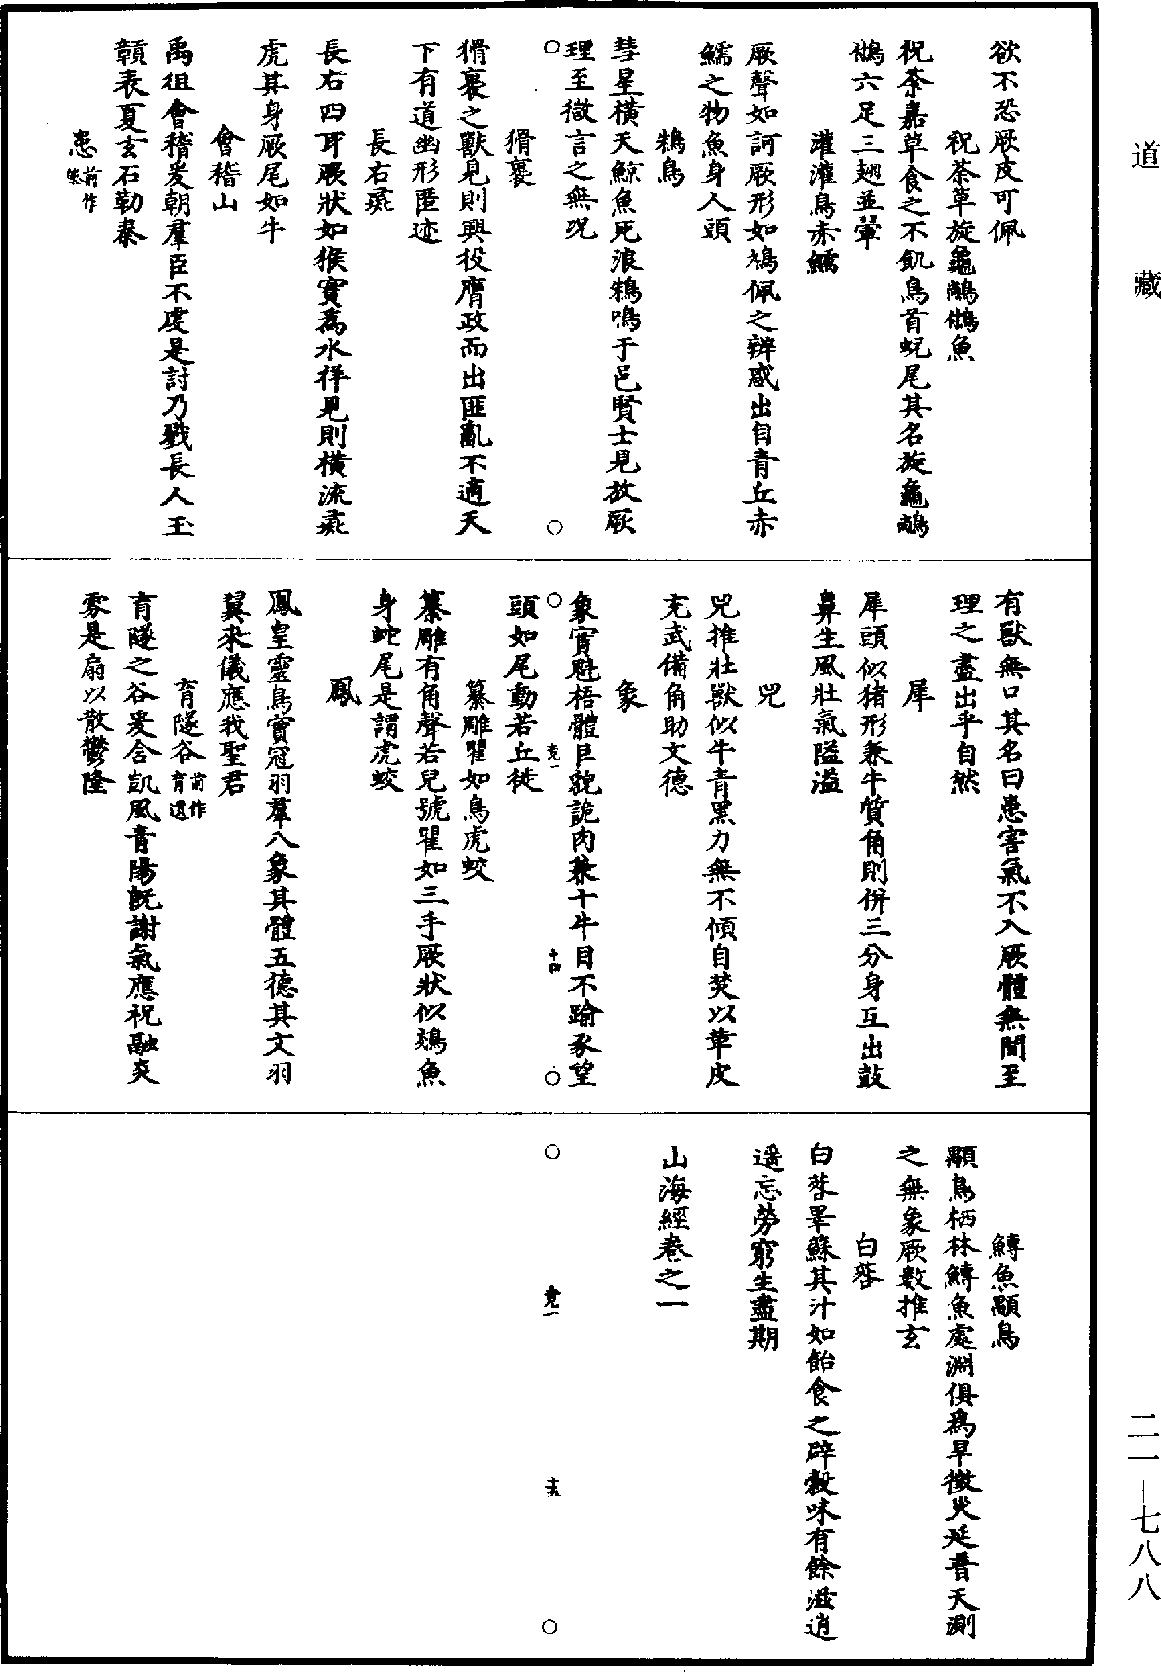 道藏
欲不恐厥皮可佩
祝荼草旋龜鵂魚
祝荼嘉草食之不飢鳥首虺尾其名旋龜
鵂六足三翅並翬
灌灌鳥赤鱬
厥聲如訶厥形如鳩佩之辨惑出自青丘赤
鱬之物魚身人頭
鴸鳥
彗星橫天鯨魚死浪鴸鳴于邑賢士見放厥
理至微言之無況
猾褢
猾褢之獸見則興役膺政而出匪亂不適天
下有道幽形匿迹
長右彘
長右四耳厥狀如猴實為水祥見則橫流彘
虎其身厥尾如牛
會稽山
禹徂會稽爰朝羣臣不虔是討乃戮長人玉
贑表夏玄石勒秦
患前作
有獸無口其名曰患害氣不入厥體無間至
理之盡出乎自然
犀
犀頭似猪形兼牛質角則併三分身互出鼓
鼻生風壯氣隘溢
兕
兕推壯獸似牛青黑力無不傾自焚以革皮
充武備角助文德
象
象實魁梧體巨貌詭肉兼十牛目不踰豕望
頭如尾動若丘徙
纂雕瞿如鳥虎蛟
纂雕有角聲若兒號瞿如三手厥狀似鵁魚
身蛇尾是謂虎蛟
鳳
鳳皇靈鳥實冠羽羣八象其體五德其文羽
翼來儀應我聖君
育隧谷前作育遺
育隧之谷爰含凱風青陽既謝氣應祝融炎
雰是扇以散鬱隆
鱄魚顒鳥
顒鳥栖林鱄魚處淵俱為旱徵災延普天測
之無象厥數推玄
白䓘
白䓘睪蘇其汁如飴食之辟穀味有餘滋逍
遥忘勞窮生盡期
山海經卷之一
竟一
十四
竟一
十五
二一—七八八